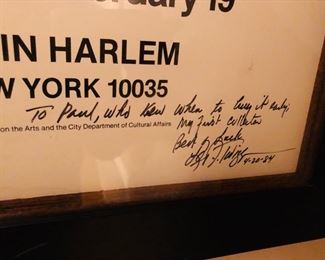 ruary 19
IN HARLEM
W YORK 10035
To Paul, who kew when to buy it early,
on the Arts and the City Department of Cultural Affairs
My first collector
Best of Luck,
4-20-84